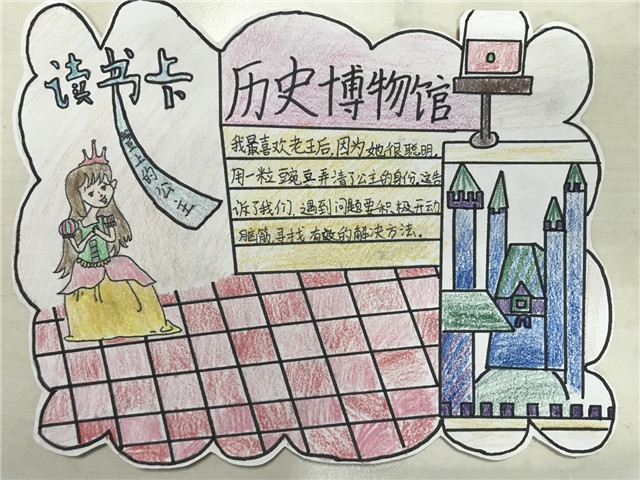 读书卡
豆上的公主
历史博物馆
我最喜欢老王后,因为她很聪明,
用一粒豌豆弄清了公主的身份。这告
诉了我们,遇到问题要积极开动
脑筋,寻找有效的解决方法。